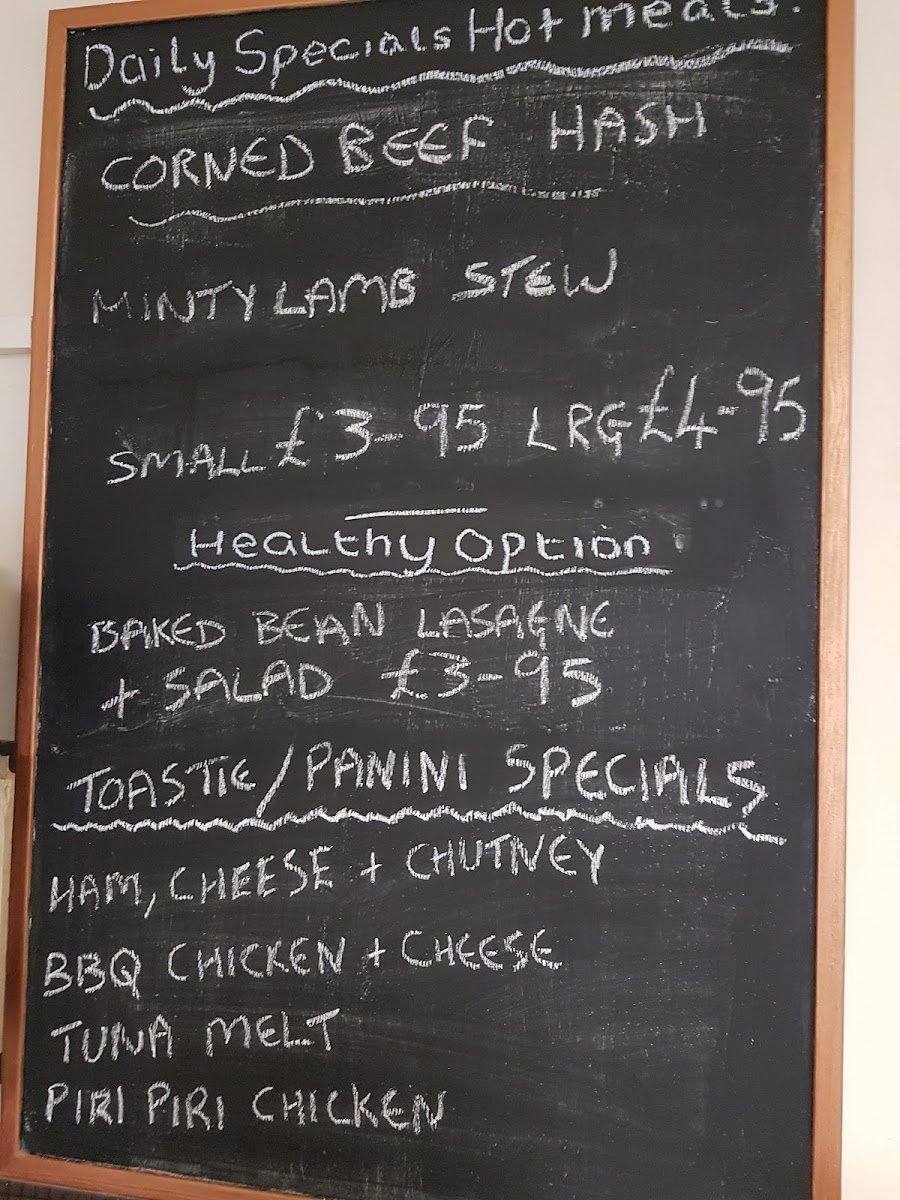 Daily Specials Hot meals.
CORNED BEEF HASH
MINTY LAMB STEW
SMALL £3-95 LRG £4-95
Healthy Option
BAKED BEAN LASAGNE
+ SALAD £3-95
TOASTIE/PANINI SPECIALS
HAM, CHEESE + CHUTNEY
BBQ CHICKEN + CHEESE
TUNA MELT
PIRI PIRI CHICKEN